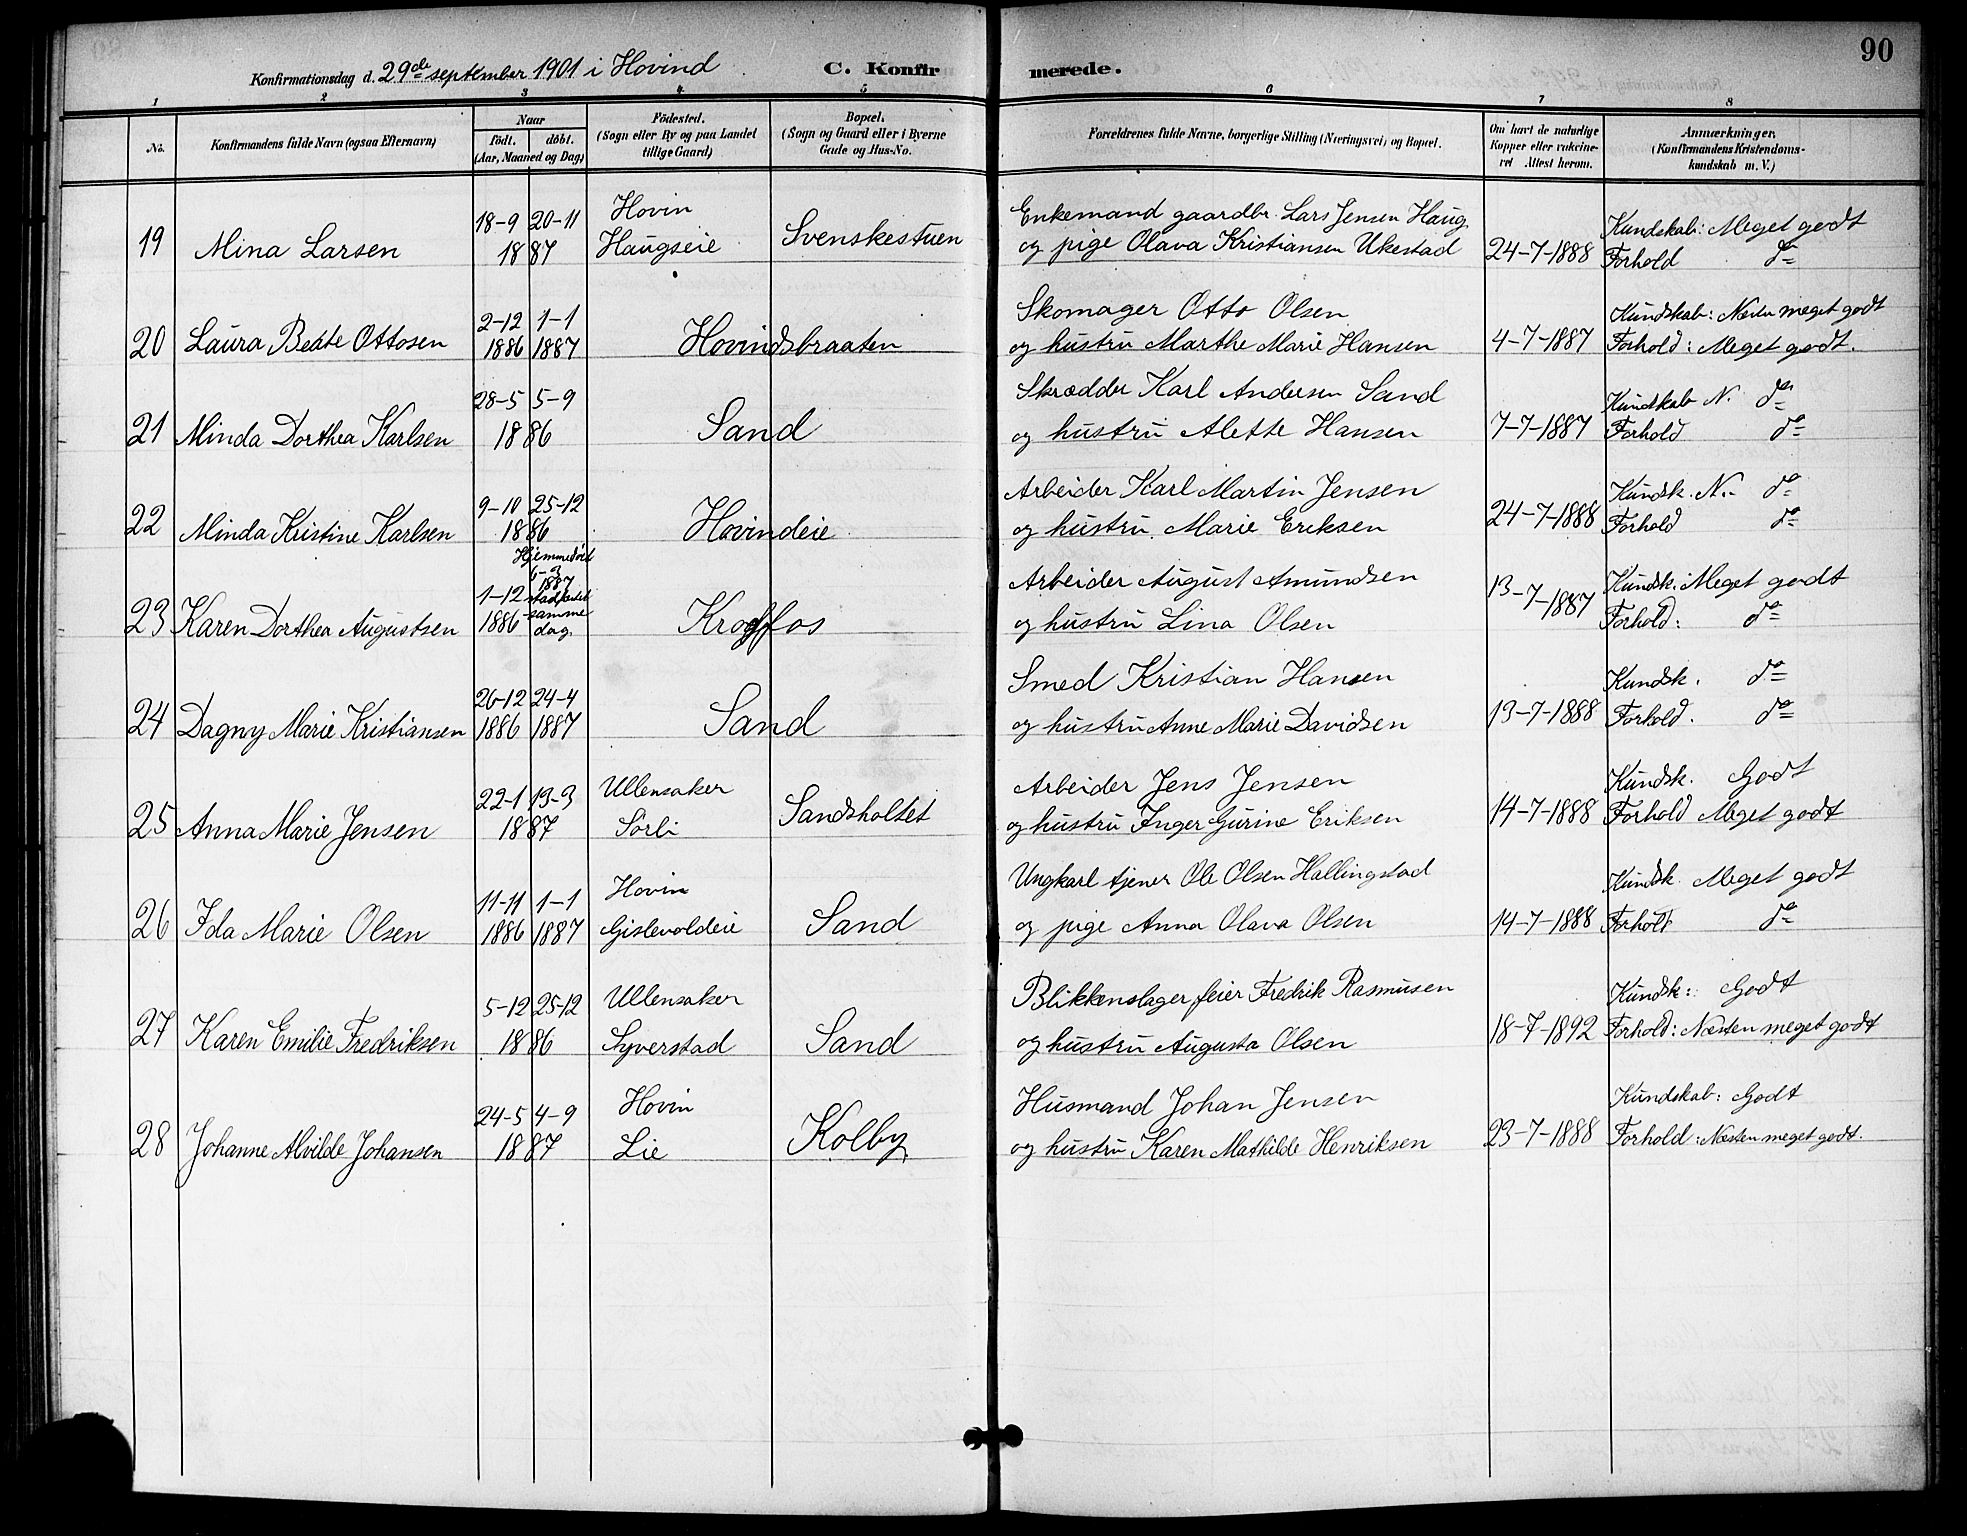 90
Konfirmationsdag d. 29de september 1901 i Hovind C. Konfirmerede.
1 2 3 4 5 6 7 8
No. Konfirmandens fulde Navn (ogsaa Efternavn) Naar født. døbt. (Aar, Maaned og Dag) Fødested. (Sogn eller By og paa Landet tillige Gaard) Bopæl. (Sogn og Gaard eller i Byerne Gade og Hus-No. Forældrenes fulde Navne, borgerlige Stilling (Næringsvei) og Bopæl. Om havt de naturlige Kopper eller vakcineret Attest herom. Anmærkninger. (Konfirmandens Kristendomskundskab m. V.)
18-9 20-11 Hovin Enkemand gaardbr. Lars Jensen Haug Kundskab: Meget godt
19 Mina Larsen 1887 Haugseie Svenskestuen og pige Olava Kristiansen Ukestad 24-7-1888 Forhold do
2-12 1-1 Skomager Otto Olsen Kundskab: Næsten meget godt
20 Laura Beate Ottosen 1886 1887 Hovindsbraaten og hustru Marthe Marie Hansen 4-7-1887 Forhold: Meget godt.
28-5 5-9 Skrædder Karl Andersen Sand Kundskab N. do
21 Minda Dorthea Karlsen 1886 Sand og hustru Alette Hansen 7-7-1887 Forhold do
9-10 25-12 Arbeider Karl Martin Jensen Kundsk. N.- do
22 Minda Kristine Karlsen 1886 Hovindeie og hustru Marie Eriksen 24-7-1888 Forhold do
Hjemmedøbt
6-3
1887
1-12 stadfæstet Arbeider August Amundsen 13-7-1887 Kundsk.: Meget godt
23 Karen Dorthea Augustsen 1886 samme dag. Krogfos og hustru Lina Olsen Forhold: do
26-12 24-4 Smed Kristian Hansen Kundsk. do
24 Dagny Marie Kristiansen 1886 1887 Sand og hustru Anne Marie Davidsen 13-7-1888 Forhold. do
22-1 13-3 Ullensaker Arbeider Jens Jensen Kundsk. Godt
25 Anna Marie Jensen 1887 Sørli Sandsholtet og hustru Inger Gurine Eriksen 14-7-1888 Forhold Meget godt
11-11 1-1 Hovin Ungkarl tjener Ole Olsen Hallingstad Kundsk. Meget godt
26 Ida Marie Olsen 1886 1887 Gislevoldeie Sand og pige Anna Olava Olsen 14-7-1888 Forholt do
5-12 25-12 Ullensaker Blikkenslager, feier Fredrik Rasmusen Kundsk: Godt
27 Karen Emilie Fredriksen 1886 Syverstad Sand og hustru Augusta Olsen 18-7-1892 Forhold: Næsten meget godt
24-5 4-9 Hovin Husmand Johan Jensen Kundskab: Godt
28 Johanne Alvilde Johansen 1887 Lie Kolby og hustru Karen Mathilde Henriksen 23-7-1888 Forhold: Næsten meget godt.